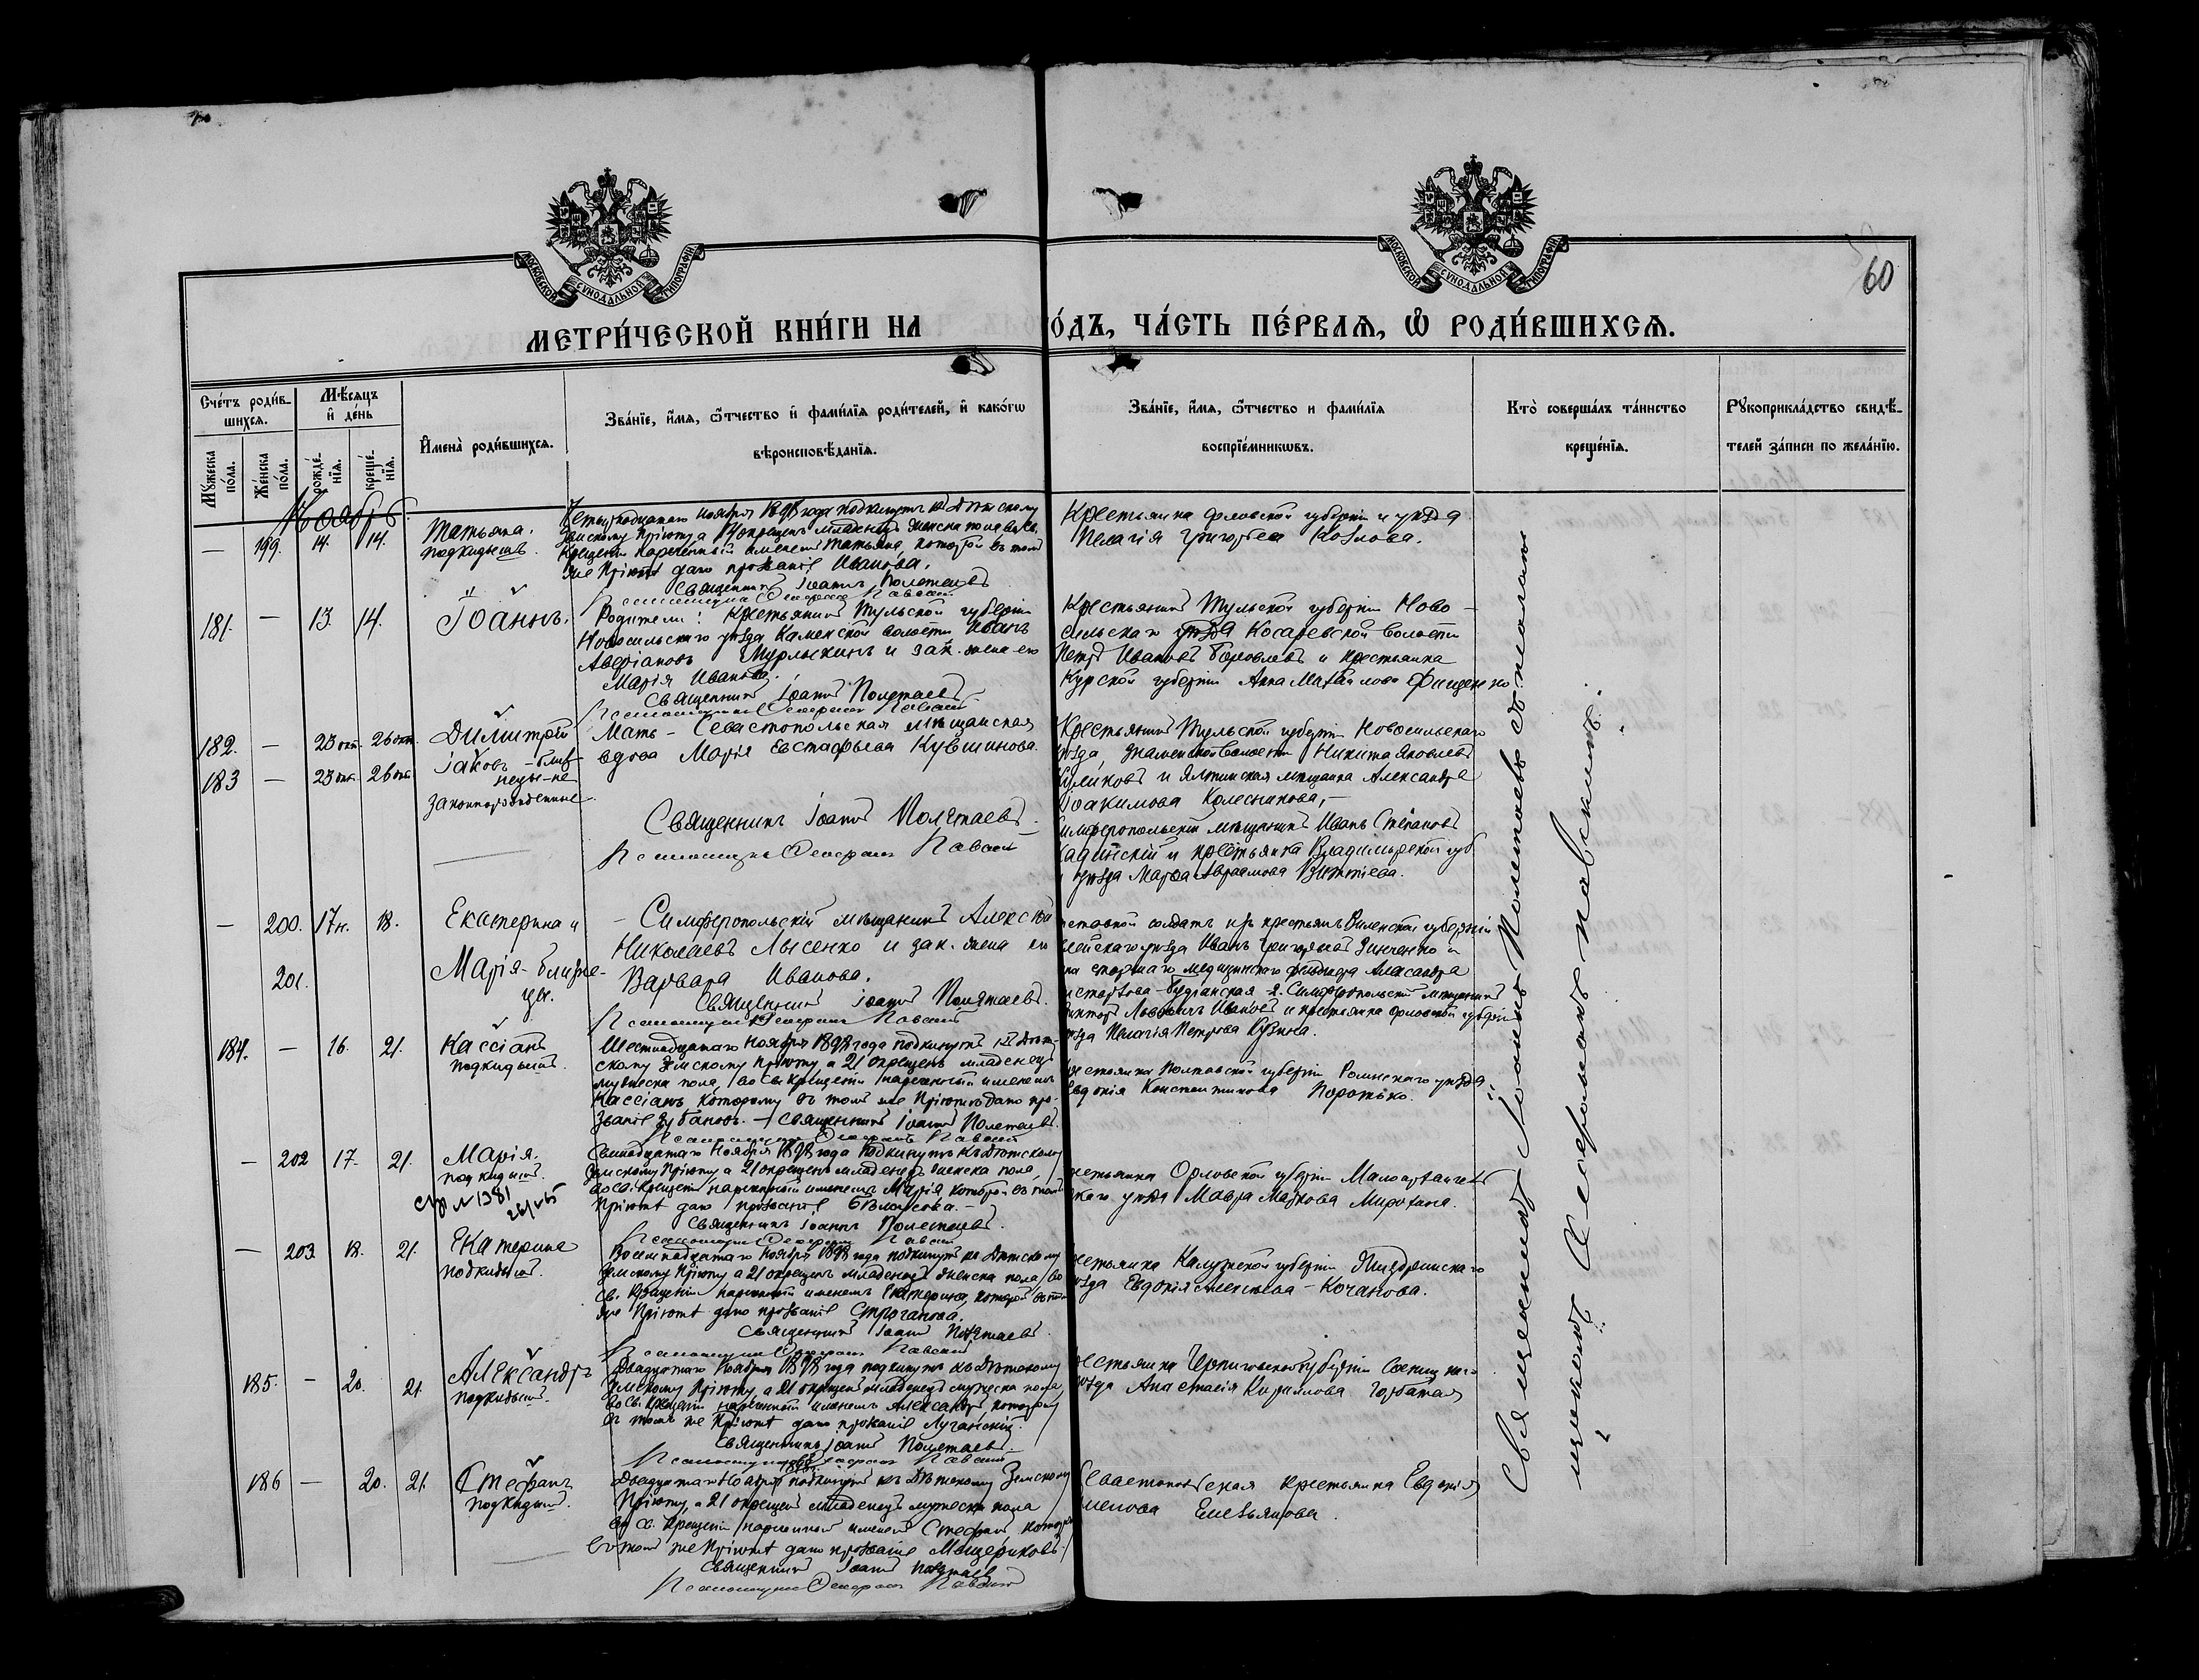 60
МОСКОВСКОЙ СѴНОДАЛЬНОЙ ТИПОГРАФІИ
МОСКОВСКОЙ СѴНОДАЛЬНОЙ ТИПОГРАФІИ
МЕТРИ́ЧЕСКОЙ КНИ́ГИ НА
О́ДЪ, ЧА́СТЬ ПЕ́РВАЯ, Ѿ РОДИ́ВШИХСЯ.
Сче́тъ роди́в-
шихся.
Мѣ́сяцъ
и҆ де́нь
Мꙋ́жеска по́ла.
Же́нска по́ла.
рожде́-
нїя.
креще́-
нїя.
И҆мена̀ роди́вшихся.
Зва́нїе, и҆́мя, ѻ҆́тчество и҆ фами́лїя роди́телей, и҆ како́гѡ
вѣроисповѣ́данїя.
Зва́нїе, и҆́мя, ѻ҆́тчество и фами́лїя
воспрїе́мникѡвъ.
Кто̀ соверша́лъ та́инство
креще́нїя.
Рꙋкоприкла́дство свидѣ́-
телей за́писи по жела́нїю.
Ноябрь
— 199. 14. 14.
Татьяна.
подкидышъ.
Четырнадцатаго ноября 1898 года подкинутъ къ Дѣтскому
Земскому Пріюту, а 14 окрещенъ младенецъ женска пола, во Св.
Крещеніи нареченный именемъ Татьяна, которой въ томъ
же Пріютѣ дано прозваніе Иванова.
Священникъ Іоаннъ Полетаевъ
Крестьянка Орловской губерніи и уѣзда
Пелагія Григорьева Козлова.
181. — 13. 14.
Іоаннъ.
Родители: Крестьянинъ Тульской губерніи
Новосильскаго уѣзда Каменской волости Иванъ
Аверіановъ Мурлыкинъ и зак. жена его
Марія Иванова.
Священникъ Іоаннъ Полетаевъ
Крестьянинъ Тульской губерніи Ново-
сильскаго уѣзда Косаревской волости
Петръ Ивановъ и крестьянка
Курской губерніи Анна
182. — 23 окт. 26 окт.
183 — 23 окт. 26 окт.
Димитрій
Іаковъ - близ-
нецы - не-
законнорожденные.
Мать - Севастопольская мѣщанская
вдова Марія Евстафьева Кувшинова.
Священникъ Іоаннъ Полетаевъ
Крестьянинъ Тульской губерніи Новосильскаго
уѣзда, Знаменской волости Никита Яковлевъ
Куликовъ и Ялтинская мѣщанка Александра
Іоакимова Колесникова,-
Симферопольскій мѣщанинъ Иванъ Степановъ
и крестьянка Владимірской губ.
уѣзда Марѳа Авраамова
— 200. 17 н. 18.
201.
Екатерина и
Марія - близне-
цы.
- Симферопольскій мѣщанинъ Алексѣй
Николаевъ Лысенко и зак. жена его
Варвара Иванова.
Священникъ Іоаннъ Полетаевъ.
солдатъ изъ крестьянъ Виленской губерніи
уѣзда Иванъ Григорьевъ Зинченко и
старшаго медицинскаго фельдшера Александра
2. Симферопольскій мѣщанинъ
Викторъ Ивановъ и крестьянка Орловской губерніи
уѣзда Пелагія Петрова Кузина.
184. — 16. 21.
Кассіанъ
подкидышъ.
Шестнадцатаго Ноября 1898 года подкинутъ къ Дѣт-
скому Земскому Пріюту, а 21 окрещенъ младенецъ
мужеска пола, во Св. Крещеніи нареченный именемъ
Кассіанъ которому въ томъ же Пріютѣ дано про-
званіе Зубановъ. - Священникъ Іоаннъ Полетаевъ.
крестьянка Полтавской губерніи Роменскаго уѣзда
Евдокія Константинова Поротько.
— 202 17. 21.
Марія.
подкидышъ.
Семнадцатаго Ноября 1898 года подкинутъ къ Дѣтскому
Земскому Пріюту, а 21 окрещенъ младенецъ женска пола,
во Св. Крещеніи нареченный именемъ Марія, которой въ томъ же
Пріютѣ дано прозваніе
Священникъ Іоаннъ Полетаевъ.
крестьянка Орловской губерніи Малоархангель
скаго уѣзда Мавра Маркова
— 203 18. 21.
Екатерина
подкидышъ.
Восемнадцатаго Ноября 1898 года подкинутъ къ Дѣтскому
Земскому Пріюту а 21 окрещенъ младенецъ женска пола, во
Св. Крещеніи нареченный именемъ Екатерина, которой въ томъ
же Пріютѣ дано прозваніе Строганова.
Священникъ Іоаннъ Полетаевъ.
крестьянка Калужской губерніи Жиздринскаго
уѣзда Евдокія Алексѣева - Кочанова.
185. — 20. 21.
Александръ
подкидышъ.
Двадцатаго Ноября 1898 года подкинутъ къ Дѣтскому
Земскому Пріюту, а 21 окрещенъ младенецъ мужеска пола
во Св. Крещеніи нареченный именемъ Александръ которому
въ томъ же Пріютѣ дано прозваніе Луганскій.
Священникъ Іоаннъ Полетаевъ.
крестьянка Черниговской губерніи
уѣзда Анастасія Кириллова Горбатая
186 — 20. 21.
Стефанъ
подкидышъ.
Двадцатаго Ноября 1898 г. подкинутъ къ Дѣтскому Земскому
Пріюту, а 21 окрещенъ младенецъ мужеска пола
во св. Крещеніи нареченный именемъ Стефанъ, которому
въ томъ же Пріютѣ дано прозваніе Мещериковъ.
Священникъ Іоаннъ Полетаевъ
Севастопольская крестьянка Евдокія
Емельянова.
Священникъ Іоаннъ Полетаевъ съ